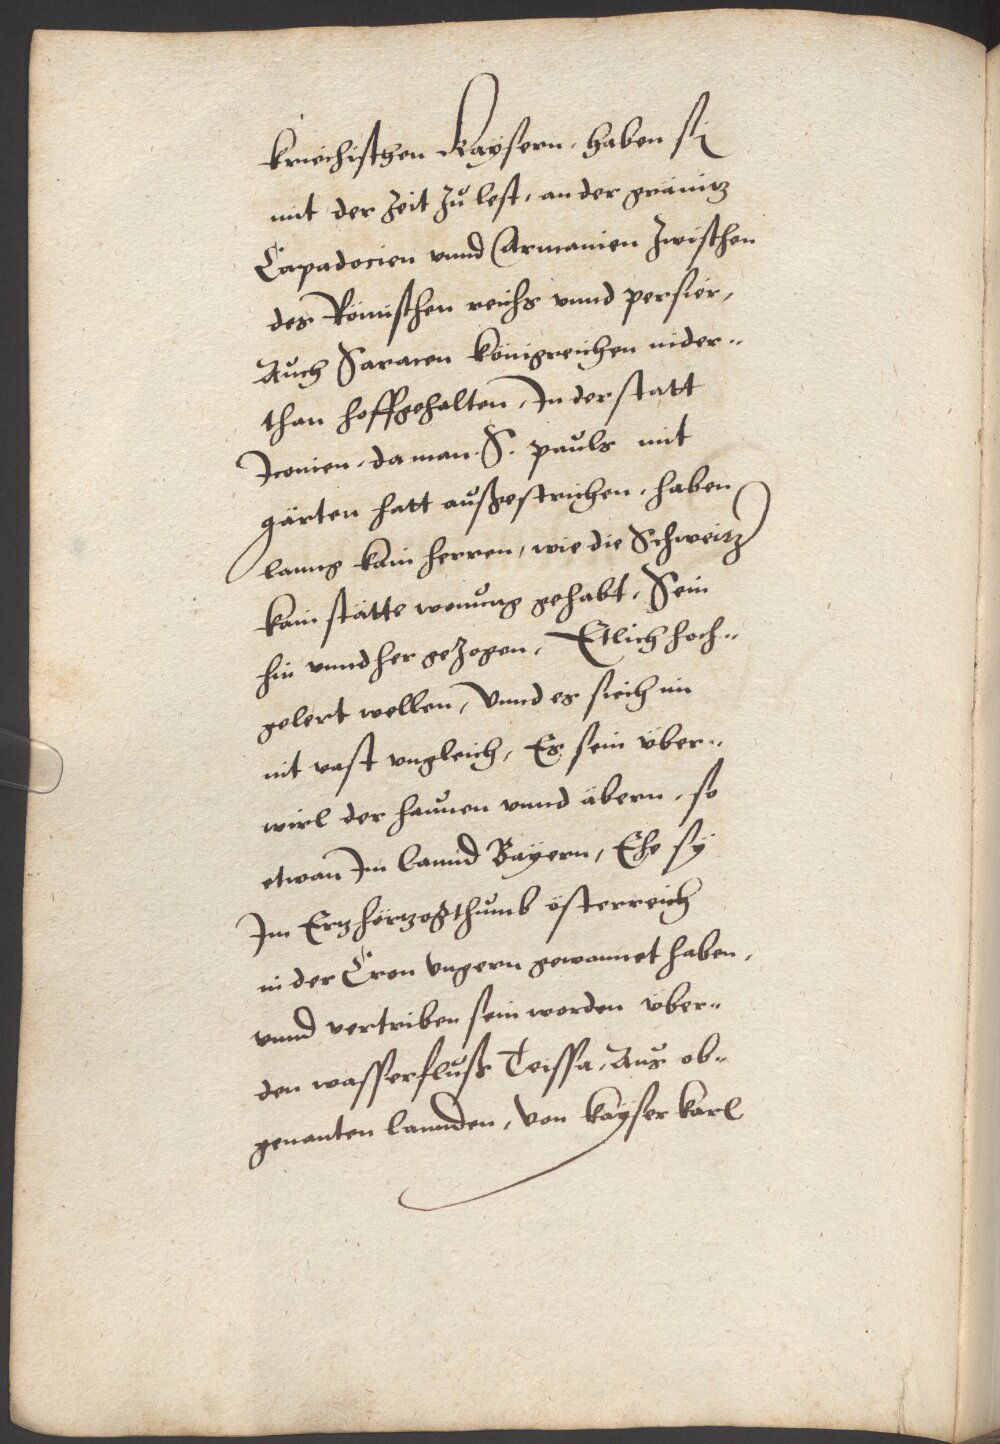 kriechischen Kaysern, haben si
mit der Zeit zů lest, an der gränitz
Capadocien vnnd Armanien zwischen
des Römischen reichs vnnd persier,
Auch Saracen königreichen nider„
than hoffgehalten, In der statt
Iconien, da man S. pauls mit
gärten hatt außgestrichen, haben
lanng kain herren, wie die Schweitz
kain stätte wonung gehabt, Sein
hin vnnd her gezogen, Etlich hoch„
gelert wellen, Vnnd es siech im
nit vast vngleich, Es sein über„
wirl der haunen vnnd äbern, so
etwan Im lannd Bayern, Ehe sy
Im Ertzhertzogthumb österreich
in der Cron vngern gewonnet haben,
vnnd vertriben sein worden über„
den wasserflůß Teissa, Aus ob„
genanten lannden, Von kayser karl